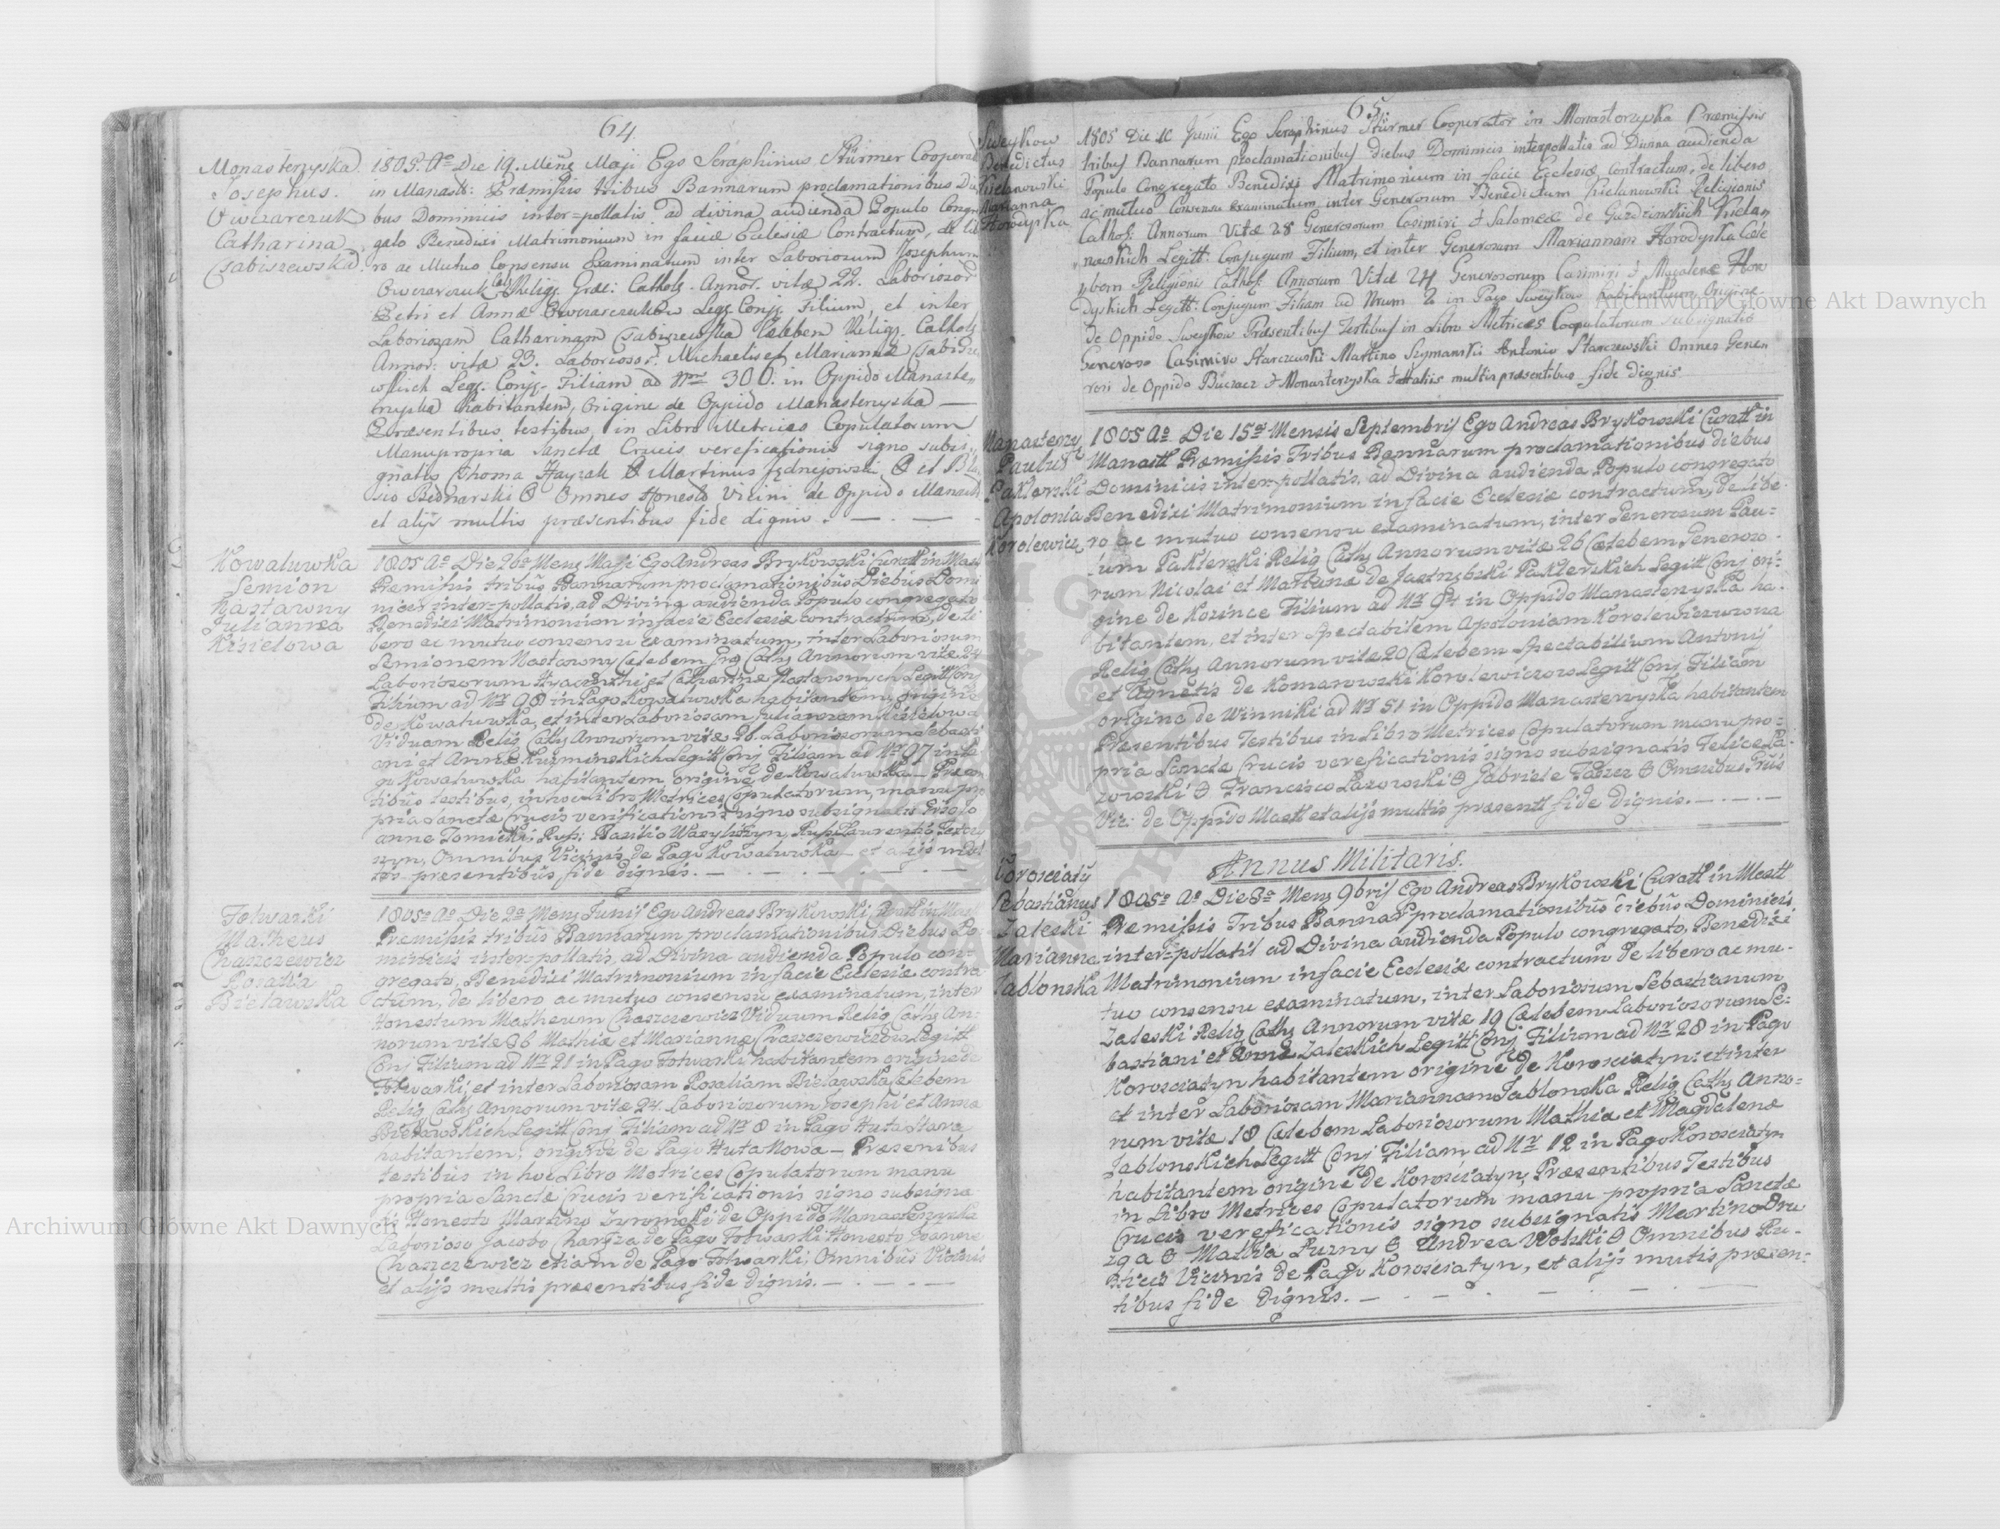 64
Monasterzyska
Josephus
Owczarczuk
Catharina
Csabiszewska
1805. Ao Die 19. Menz Maji Ego Seraphinus Stürmer Cooperat
in Manast: Præmissis tribus Bannarum proclamationibus Die
bus Dominicis inter-pollatis ad divina audienda Populo Congre
gato Benedixi Matrimonium in facie Eclesiæ Contractum, de Libe
ro ac Mutuo Consensu Examinatum inter Laboriosum Josephum
Owczarczuk Relig: Græc: Cathol: Annor: vitæ 22. Laboriosor
Petri et Annæ Owczarczukow Leg: Conj: Filium, et inter
Laboriosam Catharinam Csabiszewska Cælebem Relig: Cathol:
Annor: vitæ 23. Laboriosor: Michaelis et Mariannæ Csabisze
wskich Leg: Conj: Filiam ad Nrm 300. in Oppido Manaste„
rzyska habitantem, Origine de Oppido Manasterzyska —
Præsentibus testibus, in Libro Metrices Copulatorum
Manupropria Sanctæ Crucis vereficationis signo subsi„
gnatis Thoma Hayzak Martinus Jędrzejowski et Bla
sio Bednarski Omnes Honesto Vicini de Oppido Manast
et alijs multis præsentibus fide dignis. — . — .
Kowaluwka
Semion
Nastawny
Julianna
Kisielowa
1805 Ao Die 26a Menz Maji Ego Andreas Brykowski Curatt in Mast
Premissis tribus Bannarum proclamationibus Diebus Domi
nicis inter-pollatis, ad Divina audienda Populo congregato
Benedixi Matrimonium in facie Ecclesiæ contractum, de li
bero ac mutuo consensu Examinatum, inter Laboriosum
Semionem Nastawny Cælebem Græ Cathz Annorum vitæ 24
Laboriosorum et Catharinæ Nastawnych Legitt Conj
Filium ad Nr 98 in Pago Kowaluwka habitantem, origine
de Kowaluwka, et inter Laboriosam Juliannam Kisielowa
Viduam Relig Cathz Annorum vitæ 26. Laboriosorum Sebasti
ani et Annæ Kuzminskich Legitt Conj Filiam ad Nr 97 in Pa
go Kowaluwka habitantem origine de Kowaluwka — Præsen
tibus testibus, in hoc Libro Metrices Copulatorum, manu pro
pria sanctæ crucis verificationis signo subsignatis
anne Tomicki, Rusz: Bazilio Wasyliszyn, Laurentio
szyn, Omnibus Vicinis de Pago Kowaluwka — et alijs mul
tis presentibus, fide dignis. — . — . — . —
Folwarki
Matheus
Chaszczewicz
Rosalia
Bielawska
1805o Ao Die 2a Menz Junij Ego Andreas Brykowski Curatt in Mas
Premissis tribus Bannarum proclamationibus Diebus Do
minicis inter-pollatis, ad Divina audienda Populo con-
gregato, Benedixi Matrimonium in facie Ecclesiæ contra
ctum, de libero ac mutuo consensu examinatum, inter
Honestum Matheum Chaszczewicz Viduum Relig Cathz An-
norum vitæ 36 Mathiæ et Mariannæ Chaszczewiczow Legitt
Conj Filium ad Nr 21 in Pago Folwarki habitantem origine de
Folwarki et inter Laboriosam Rosaliam Bielawska Cælebem
Relig Cathz Annorum vitæ 24 Laboriosorum Josephi et Annæ
Bielawskich Legitt Conj Filiam ad Nr 8 in Pago Huta Stara
habitantem, origine de Pago Huta Nowa — Præsenibus
testibus in hoc Libro Metrices Copulatorum manu
propria Sanctæ Crucis verificationis signo subsigna
Honesto Martino de Oppido Manasterzyska
Laborioso Jacobo de Pago Folwarki Honesto Joanne
Chaszczewicz etiam de Pago Folwarki, Omnibus Vicinis
et alijs multis præsentibus fide dignis. — . — . —
65
Sweykow
Benedictus
Kielanowski
Marianna
Horodyska
1805 Die 10 Junii Ego Seraphinus Stürmer Cooperator in Monastorzyska Præmissis
tribus Bannarum proclamationibus diebus Dominicis interpollatis ad Divina audienda
Populo Congregato Benedixi Matrimonium in facie Ecclesiæ contractum, de libero
ac mutuo Consensu examinatum inter Generosum Benedictum Kielanowski Religionis
Cathol: Annorum Vitæ 28 Generosorum Casimiri et Salomeæ de Kiela„
nowskich Legitt: Conjugum Filium, et inter Generosam Mariannam Horodyska Cæle
bem Religionis Cathol: Annorum Vitæ 24 Generosorum Casimiri et Magdalenæ Horo
dyskich Legitt: Conjugum Filiam ad Nrum 2 in Pago Sweykow habitantium Origine
de Oppido Sweykow Præsentibus Testibus in Libro Metrices Copulatorum subsignatis
Generoso Casimiro Starczewski Martino Szymanskii Antonio Starczewski Omnes Gene„
rosi de Oppido Buczacz et Monasterzyska et aliis multis præsentibus fide dignis
Manasterzy
Paulus
Pakterski
Apolonia
Korolewicz
1805 Ao Die 15a Mensis Septembrij Ego Andreas Brykowski Curatt in
Manastt Præmissis Tribus Bannarum proclamationibus diebus
Dominicis inter-pollatis, ad Divina audienda Populo congregato
Benedixi Matrimonium in facie Ecclesiæ contractum, de libe-
ro ac mutuo consensu examinatum, inter Generosum Pau-
lum Pakterski Relig Cathz Annorum vitæ 26 Cælebem Generoso-
rum Nicolai et Mariana de Jastrzebski Pakterskich Legitt Conj ori-
gine de Kozince Filium ad Nr 94 in Oppido Manasterzyska ha-
bitantem, et inter Spectabilem Apoloniam Korolewiczowna
Relig Cathz Annorum vitæ 20 Cælebem Spectabilium Antonij
et Agnetis de Komarowski Korolewiczow Legitt Conj Filiam
origine de Winniki ad Nr 51 in Oppido Manasterzyska habitantem
Presentibus Testibus in Libro Metrices Copulatorum manu pro-
pria Sanctæ Crucis vereficationis signo subsignatis Felice La-
zowski Francisco Lasowski Gabriele Omnibus
Vic: de Oppido Mastt et alijs multis præsentt fide dignis. — . — . —
Annus Militaris.
Korosciaty
Sebastianus
Zaleski
Marianna
Jablonska
1805o Ao Die 3a Menz 9brij Ego Andreas Brykowski Curatt in Mastt
Premissis Tribus Bannar proclamationibus diebus Dominicis
inter-pollatis ad Divina audienda Populo congregato, Benedixi
Matrimonium in facie Ecclesiæ contractum de libero ac mu-
tuo consensu examinatum, inter Laboriosum Sebastianum
Zaleski Relig Cathz Annorum vitæ 19 Cælebem Laboriosorum Se-
bastiani et Zaleskich Legitt Conj Filium ad Nr 28 in Pago
Korosciatyn habitantem origine de Korosciatyn: et inter
et inter Laboriosam Mariannam Jablonska Relig Cathz Anno-
rum vitæ 18 Cælebem Laboriosorum Mathiæ et Magdalenæ
Jablonskich Legitt Conj Filiam ad Nr 12 in Pago Korosciatyn
habitantem origine de Korosciatyn, Præsentibus Testibus
in Libro Metrices Copulatorum manu propria Sanctæ
Crucis vereficationis signo subsignatis Martino Dru
zga Mathia Purny Andrea Wolski Omnibus Ru-
sticis Vicinis de Pago Korosciatyn, et alijs mutis præsen-
tibus fide dignis. — . — . — . — . — . —
Archiwum Główne Akt Dawnych
Archiwum Główne Akt Dawnych